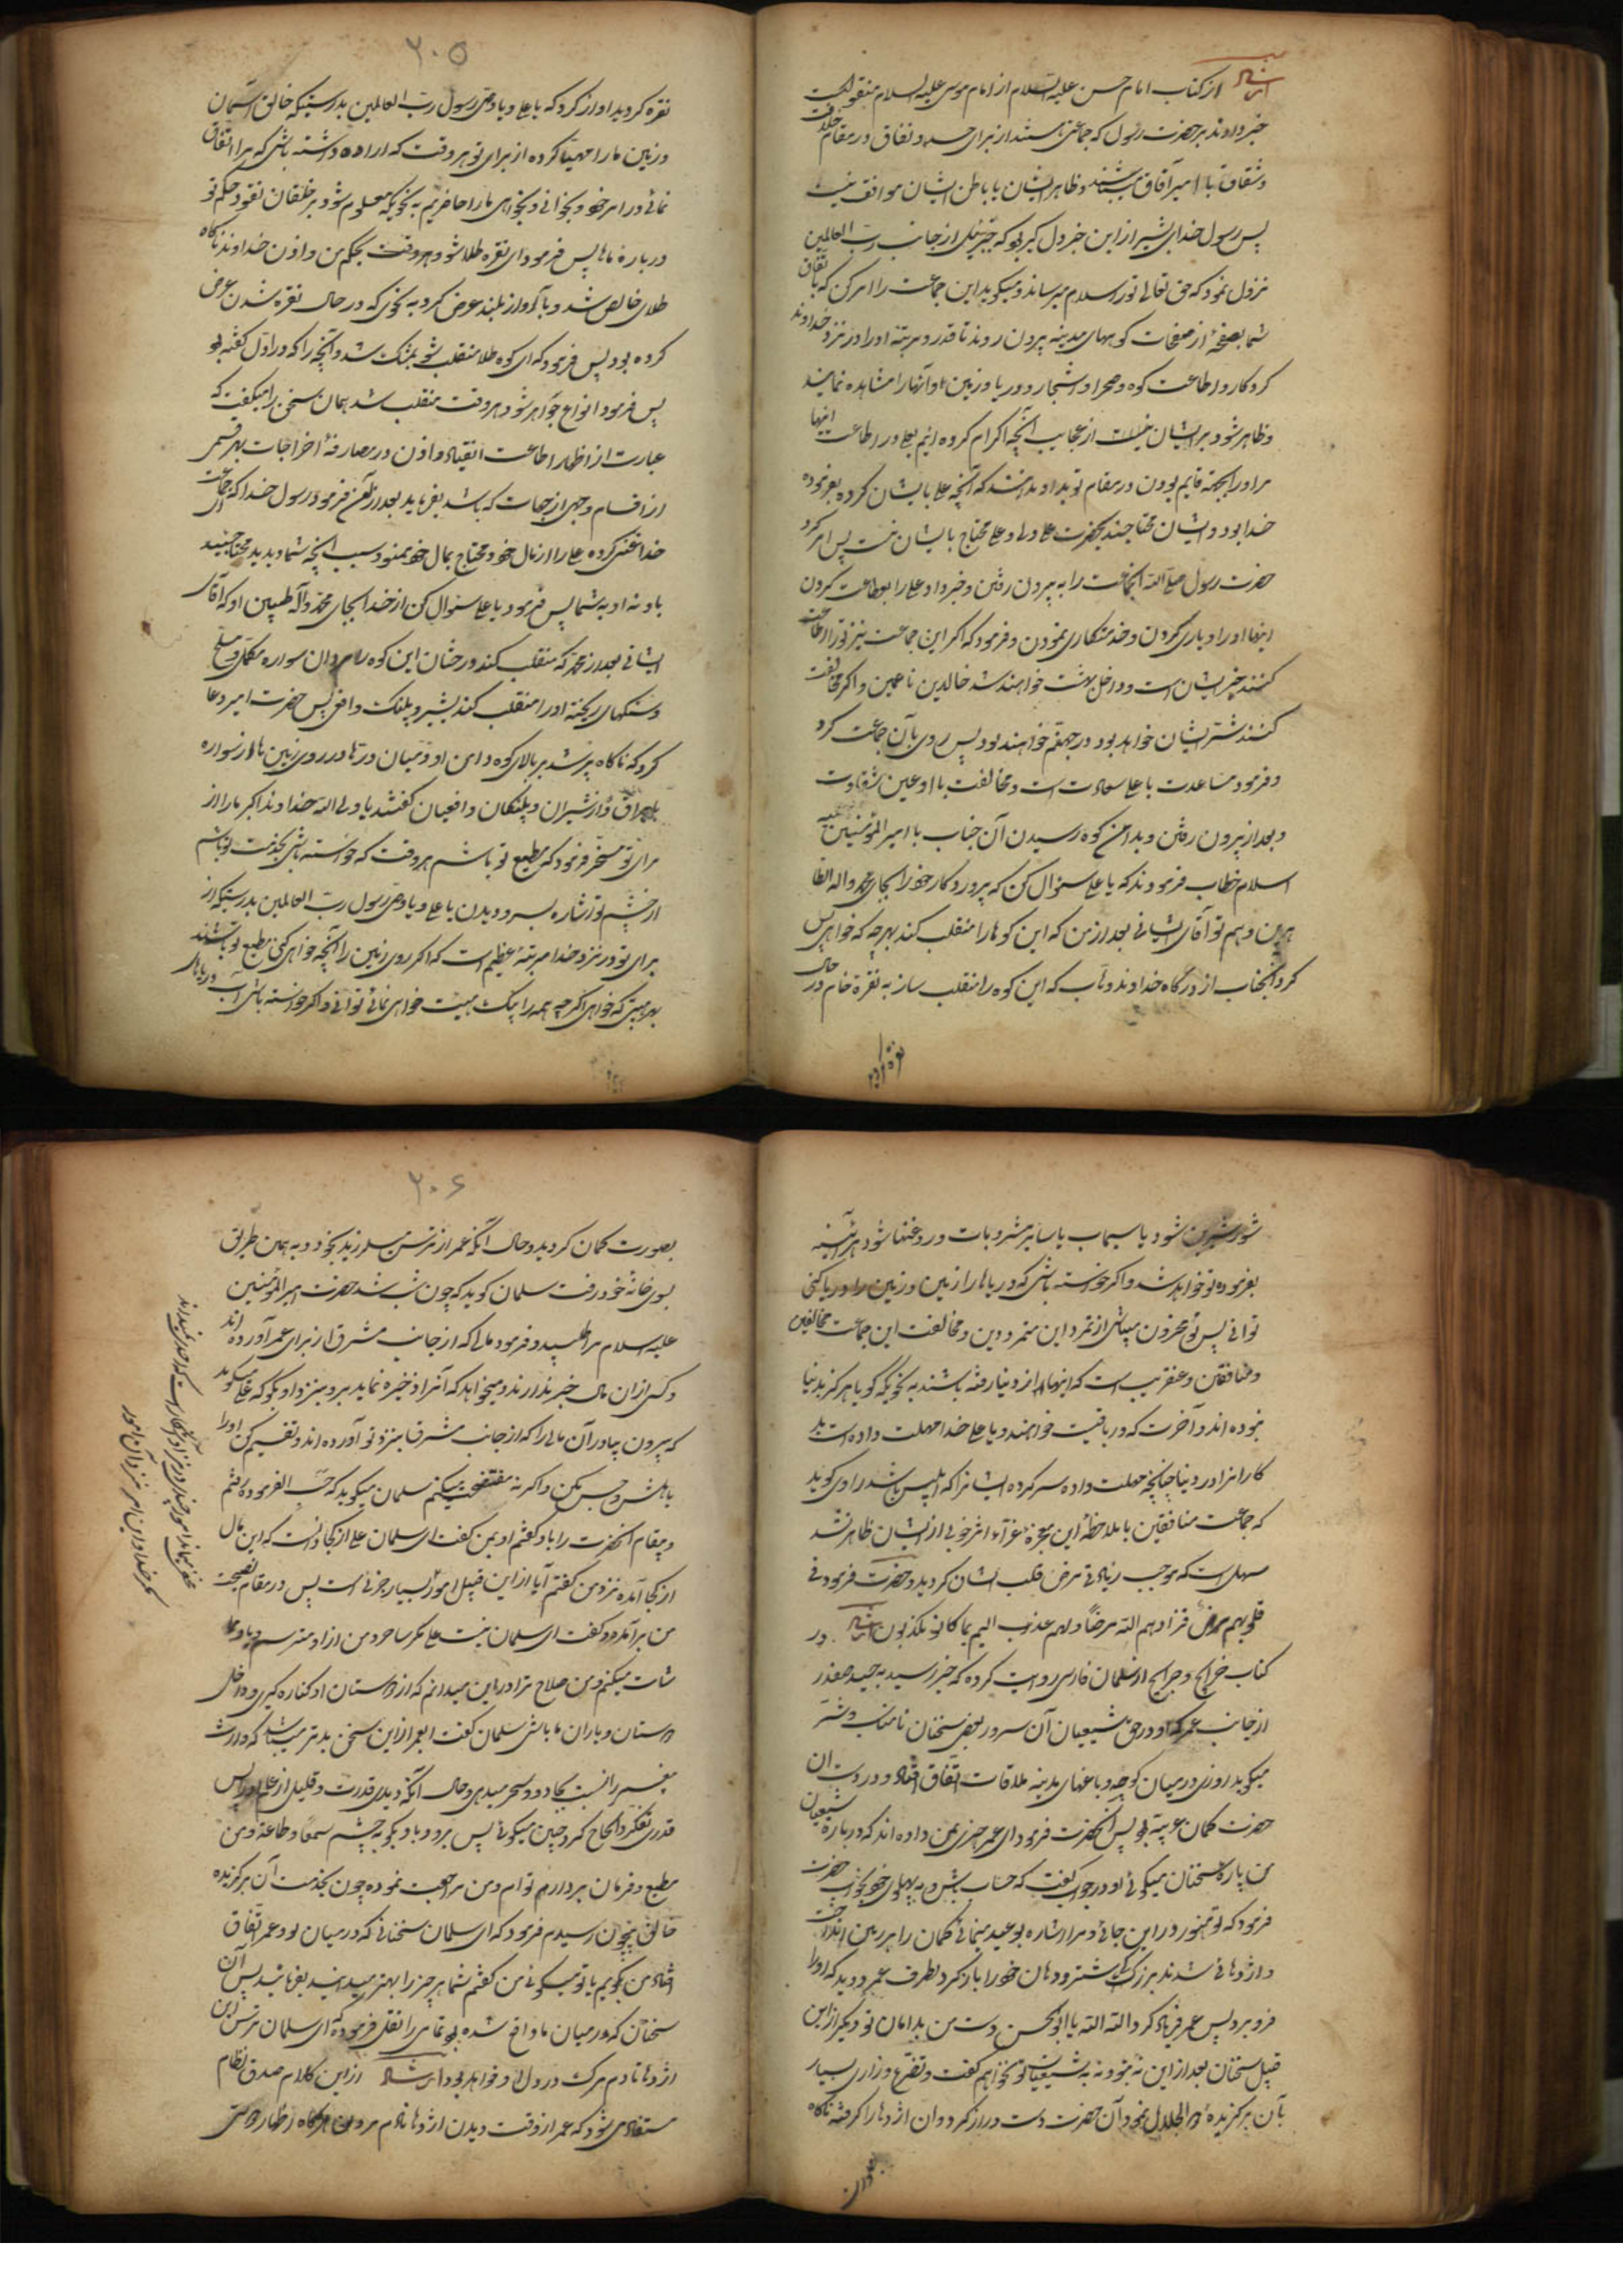 از کتاب امام حسن علیه السلام از امام موسی علیه السلام منقولست
خبر دادند بر حضرت رسول که جماعتی هستند از برای حسد و نفاق در مقام خلاف
و شقاق با امیر آفاق میباشند و ظاهر ایشان با باطن ایشان موافق نیست
پس رسول خدای بشیر از این خبر دل گیر بود که جبرئیل از جانب رب العالمین
نزول نمود که حق تعالی تو را سلام میرساند و میگوید این جماعت را امر کن که باتفاق
شما بصفحهٔ از صفحات کوههای مدینه بیرون روند تا قدر و مرتبهٔ او را در نزد خداوند
کردگار و اطاعت کوه و صحرا و اشجار و دریا و زمین او آنها را مشاهده نمایند
و ظاهر شود بر ایشان از عجایب آنچه اکرام کرده ایم بعلی در اطاعت اینها
مر او را بجهة قایم بودن در مقام تو بداوند که آنچه علی بایشان کرده بفرموده
خدا بود و ایشان محتاجند بحضرت علی و علی محتاج بایشان نیست پس امر کرد
حضرت رسول صلی الله آنجماعت را به بیرون رفتن و خبر داد علی را بطاعت کردن
اینها او را و یاری کردن و خدمتکاری نمودن و فرمود که اگر این جماعت نیز تو را اطاعت
کنند خیر ایشان است و داخل بهشت خواهند شد خالدین ناعمین و اگر مخالفت
کنند شر ایشان خواهد بود در جهنم خواهند بود پس روی بآن جماعت کرد
و فرمود مساعدت با علی سعادت است و مخالفت با او عین شقاوت
و بعد از بیرون رفتن و بدامن کوه رسیدن آن جناب با امیر المؤمنین علیه
السلام خطاب فرمودند که یا علی سؤال کن که پرورد کار خود را بجای محمد و اله الطا
هرین و هم تو آقای ایشانی بعد از من که این کوها را منقلب کند بهر چه که خواهی پس
کرد آنجناب از درگاه خداوند وهاب که این کوه را منقلب ساز به نقرهٔ خام در حال
نقره کردید
۲۰۵
نقره کردید و آواز کرد که یا علی و یا وصی رسول رب العالمین بدرستیکه خالق آسمان
و زمین ما را مهیا کرده از برای تو هر وقت که اراده داشته باشی که ما را انفاق
نمائی در امر خود و بخوانی و بخواهی ما را حاضریم به نحویکه معلوم شود بر خلقان نفوذ حکم تو
در بارهٔ ما پس فرمود ای نقره طلا شو در همان وقت بحکم من و اذن خداوند ناگاه
طلای خالص شد و باآواز بلند عرض کرد به نحوی که در حال نقره شدن عرض
کرده بود پس فرمود که ای کوه طلا منقلب شو بمشک شد و آنچه را که در اول گفته بود
پس فرمود انواع جواهر شو در هر وقت منقلب شد همان سخن را میگفت که
عبارت از اظهار اطاعت انقیاد و اذن در مصارفهٔ اخراجات بهر قسمی
از اقسام و جهی از جهات که باشد بفرماید بعد از آن فرمود رسول خدا که ای جماعت
خدا غنی کرده علی را از مال خود و محتاج بمال خود ننمود و سبب آنچه شما دیدید محتاجید
باو نه او به شما پس فرمود یا علی سؤال کن از خدا بجای محمد و آله طیبین او که آقای
ایشانی بعد از محمد که منقلب کند درختان این کوه را مردان سواره مکمل و مسلح
و سنگهای ریخته او را منقلب کند بشیر و پلنگ و افعی پس حضرت امیر دعا
کرد که ناگاه پر شد بر بالای کوه و دامن او و میان درها و در روی زمین هزار سواره
با یراق و از شیران و پلنگان و افعیان گفتند یا ولی الله خداوند اکبر ما را از
برای تو مسخر فرمود که مطیع تو باشیم هر وقت که خواسته باشی بخدمت تو باشیم
از چشم تو اشاره بسر دویدن یا علی و یا وصی رسول رب العالمین بدرستیکه از
برای تو در نزد خدا مرتبهٔ عظیم است که اگر روی زمین را آنچه خواهی کنی مطیع تو باشند
بهر هیئتی که خواهی اگر چه همه را بیک هیئت خواهی نمائی توانی و اگر خواسته باشی آب دریاهای
شور شیرین شود یا سیماب یا سایر مشروبات و روغنها شود هر آینه
بفرموده تو خواهد شد و اگر خواسته باشی که دریاها را زمین و زمین را دریا کنی
توانی پس تو محزون مباش از تمرد این متمردین و مخالفت این جماعت مخالفین
و منافقین و عنقریب است که اینها از دنیا رفته باشند به نحویکه گویا هرگز بدنیا
نبوده اند و آخرت که دریافت خواهند و یا علی خدا مهلت داده است بد
کاران را در دنیا چنانچه مهلت داده سرکرده ایشان را که ابلیس باشد راوی گوید
که جماعت منافقین با ملاحظهٔ این معجزهٔ غراء اثر خوبی از ایشان ظاهر نشد
سهل است که موجب زیادتی مرض قلب ایشان کردید و حضرت فرمود فی
قلوبهم مرض فزادهم الله مرضا و لهم عذاب الیم بما کانوا یکذبون ایضا در
کتاب خرایج و جرایح از سلمان فارسی روایت کرده که خبر رسید به حیدر صفدر
از جانب عمر که او در حق شیعیان آن سرور بعضی سخنان نامناسب و شر
میگوید روزی در میان کوچه و باغهای مدینه ملاقات اتفاق افتاد و در دست ان
حضرت کمان عربیه بود پس آنحضرت فرمود ای عمر خبری بمن داده اند که در بارهٔ شیعیان
من پاره سخنان میگوئی او در جواب گفت که حساب بپهلوی خود بخواب حضرت
فرمود که تو هنوز در این جائی و مرا اشاره بوعید مینمائی کمان را بر زمین انداخت
و اژدهائی شد بزرگ تر از شتر و دهان خود را باز کرد بطرف عمر دوید که او را
فرو برد پس عمر فریاد کرد الله الله یا ابو الحسن دست من بدامان تو دیگر از این
قبیل سخنان بعد از این نه بتو و نه به شیعیان تو نخواهم گفت و تضرع و زاری بسیار
بآن برگزیدهٔ ذو الجلال نمود آن حضرت دست دراز کرد و آن اژدها را گرفته ناگاه
۲۰۶
بصورت کمان کردید و حال آنکه عمر از ترس میلرزید بخود و به همان طریق
بسوی خانهٔ خود رفت سلمان گوید که چون شب شد حضرت امیر المؤمنین
علیه السلام مرا طلبید و فرمود مالی که از جانب مشرق از برای عمر آورده اند
و کسی از ان مال خبر ندارند و میخواهد که آنرا ذخیره نماید برو بنزد او بگو که علی میگوید
که بیرون بیاور آن مالی را که از جانب مشرق بنزد تو آورده اند و تقسیم کن او را
باهلش و حبس مکن و اگر نه مفتضحت میکنم سلمان میگوید که حسب الفرموده رفتم
و پیغام آنحضرت را باو گفتم او بمن گفت ای سلمان علی از کجا دانست که این مال
از کجا آمده نزد من گفتم آیا از این قبیل امور بسیار جزئی است پس در مقام نصیحت
من برآمده و گفت ای سلمان نیست علی مگر ساحر و من از او میترسم
و من صلاح ترا در این میدانم که از دوستان او کناره گیری و داخل
دوستان و یاران ما باشی سلمان گفت ای عمر از این سخن بدتر میباشد که وارث
پیغمبر را نسبت بجادو و سحر میدهی و حال آنکه دیدی قدرت و قلیل از علم او را پس
قدری تفکر و الحاح کرد و چنین میگوئی پس برو و باو بگو به چشم سمعا و طاعة و من
مطیع و فرمان بردارم توام و من مراجعت نموده چون بخدمت آن برگزیده
خالق بیچون رسیدم فرمود که ای سلمان سخنانی که در میان تو و عمر اتفاق
افتاد من بگویم یا تو میگوئی من گفتم شما هر چیز را بهتر میدانید بفرمائید پس آن
سخنان که در میان ما واقع شده بود تمامی را نقل فرموده که ای سلمان ترس این
اژدها تا دم مرگ در دل او خواهد بود ارشاد از این کلام صدق نظام
مستفاد می شود که عمر از وقت دیدن اژدها تا دم مردن